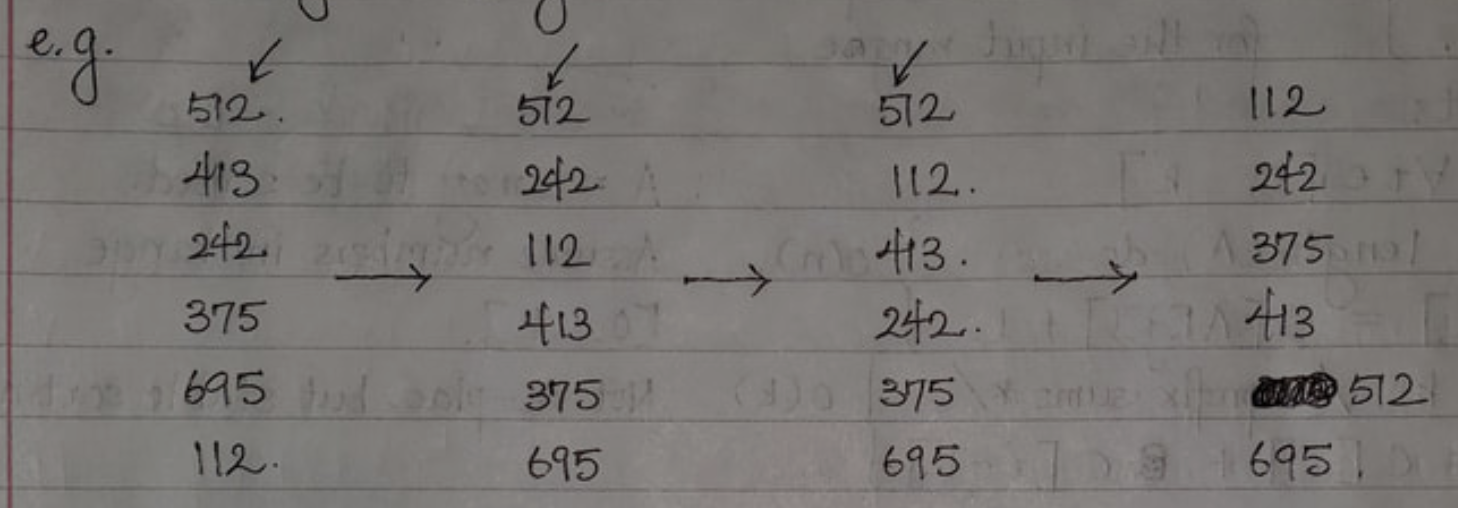 e.g.
512. 512 512 112
413 242 112. 242
242 → 112 → 413. → 375
375 413 242. 413
695 375 375 512
112. 695 695 695.